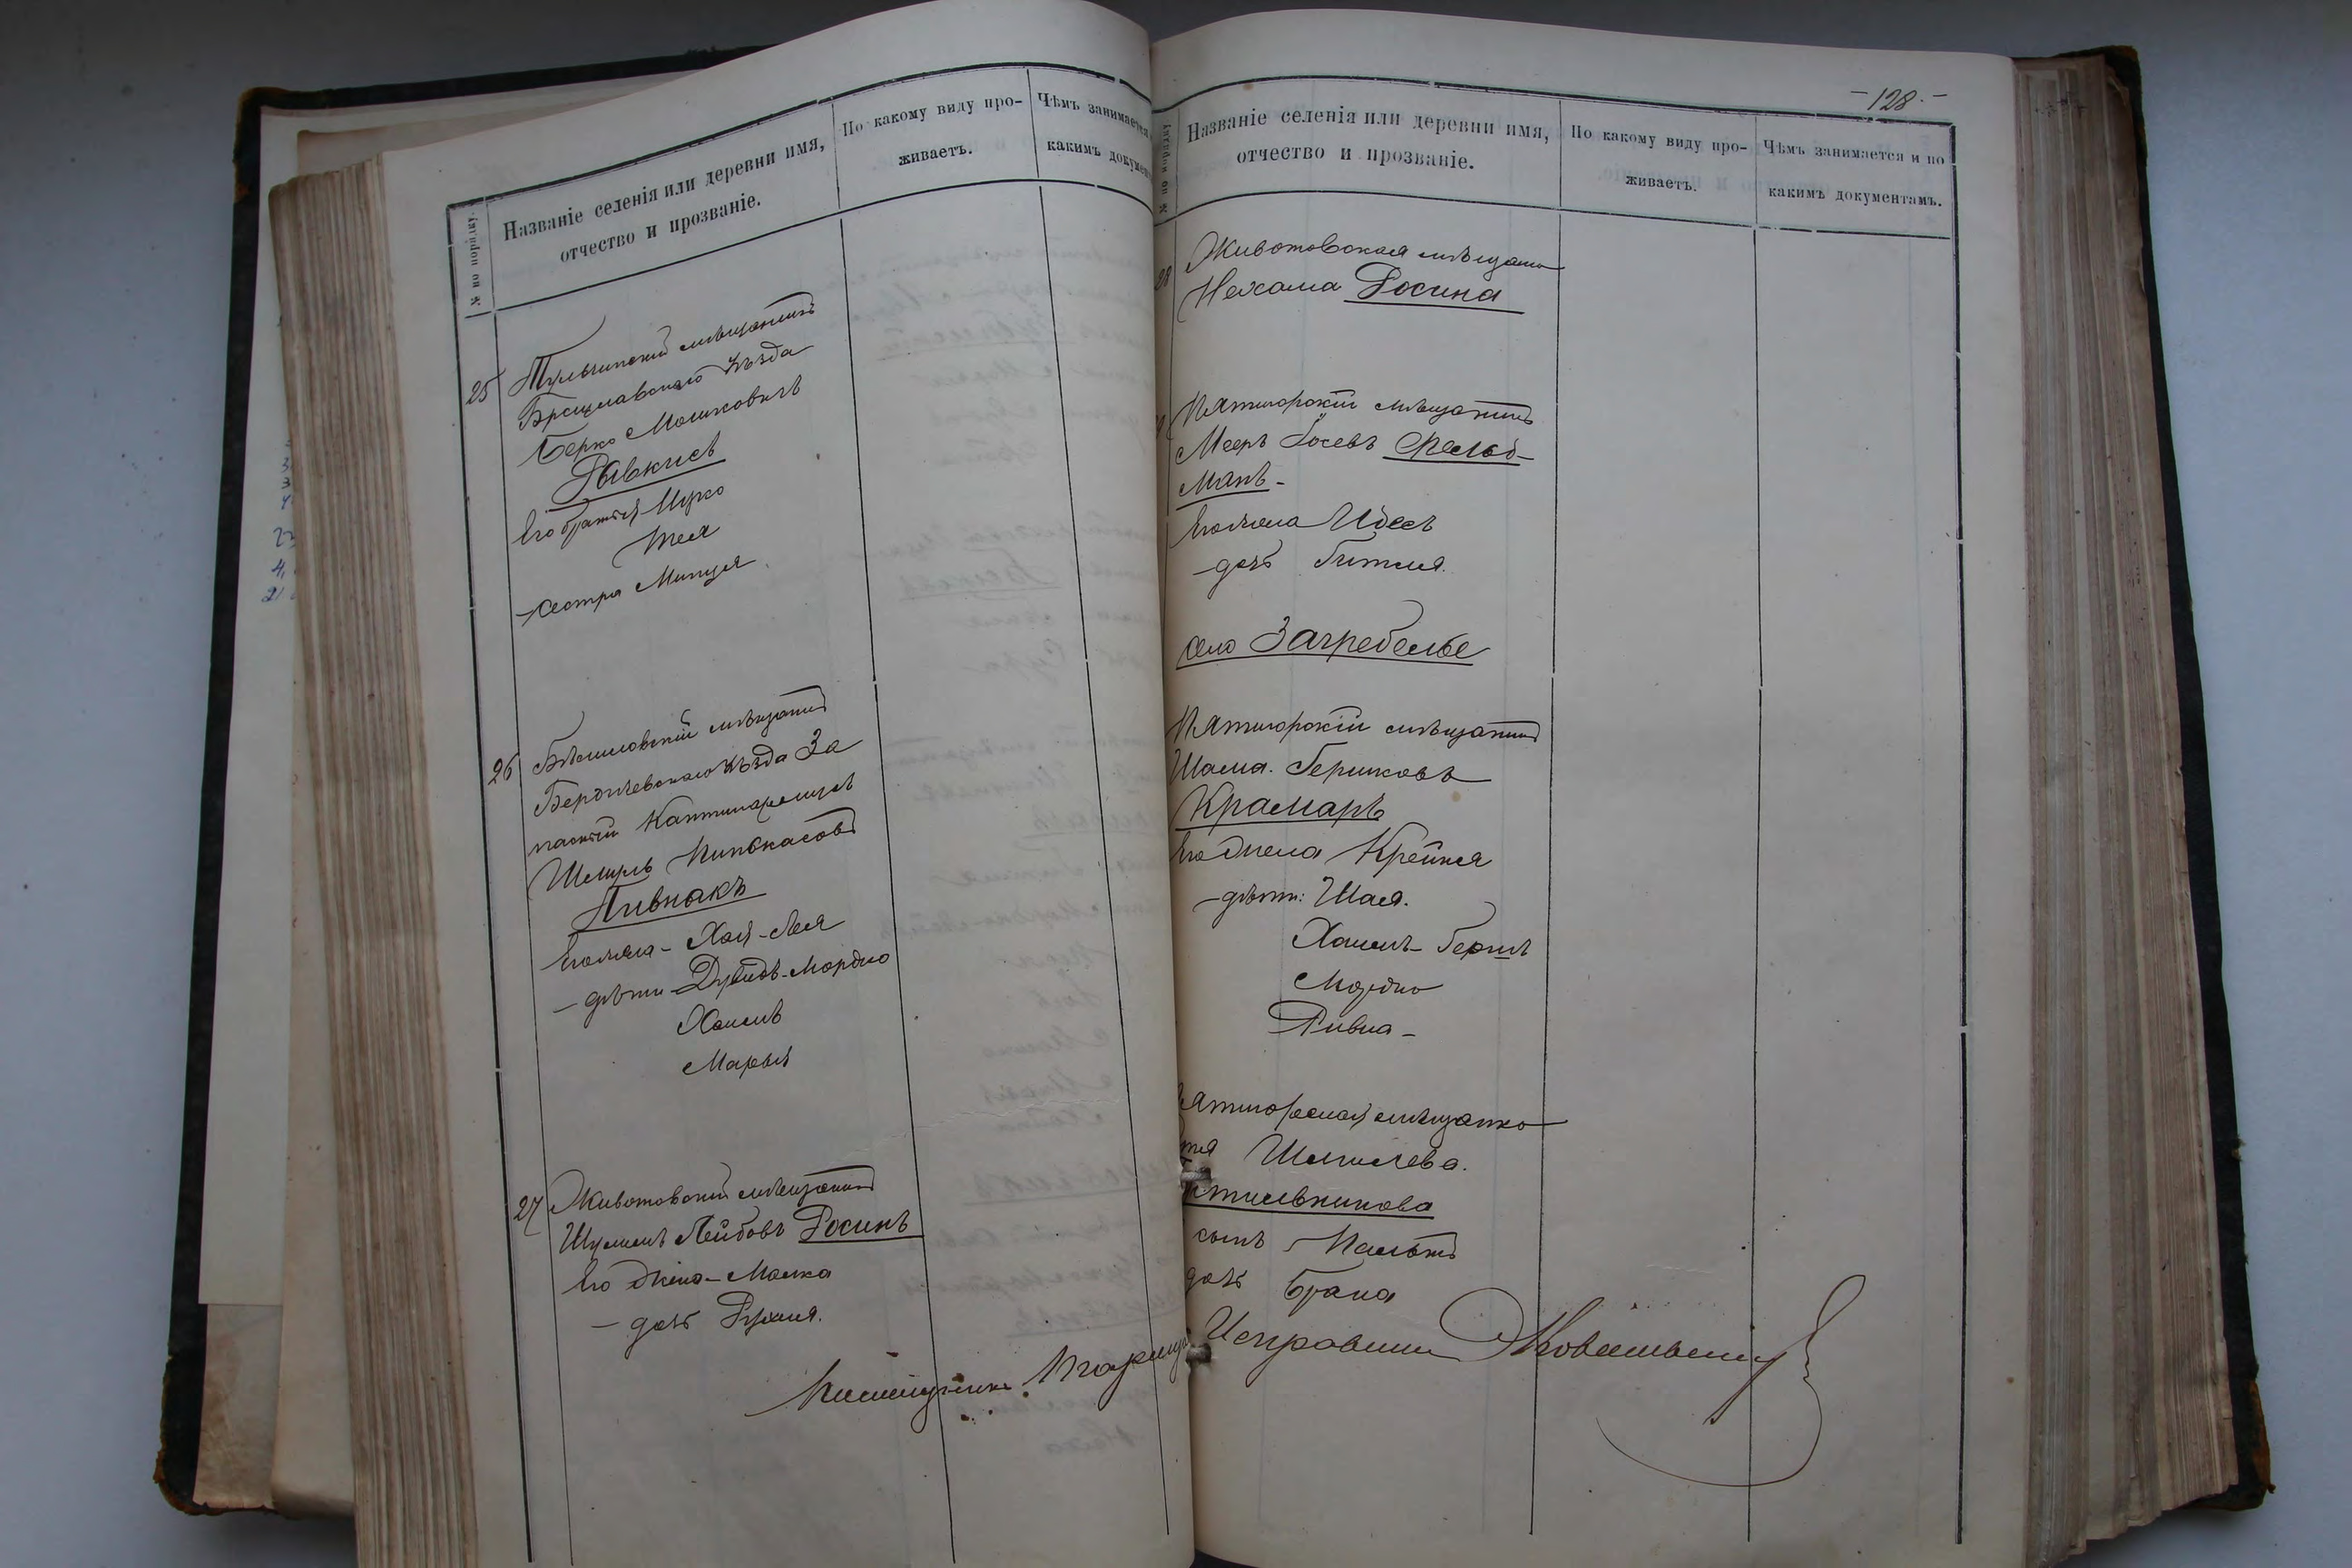 № по порядку.
Названіе селенія или деревни имя,
отчество и прозваніе.
По какому виду про-
живаетъ.
Чѣмъ занимается
какимъ докумен
25
Тульчинскій мѣщанинъ
Брацлавскаго уѣзда
Берко Мошковичъ
Рывкисъ
Его братья Ицко
Шея
сестра Минця
26
Бѣлиловскій мѣщанинъ
Бердичевскаго уѣзда За
пасный
Шмуль Пинькасовъ
Пивнякъ
Его жена - Хая-Лея
- дѣти - Дувидъ-Мордко
Хаимъ
Марья
27
Животовскій мѣщанинъ
Шулимъ Лейбовъ Росинъ
Его жена - Малка
- дочь Рухля.
№ по порядку
Названіе селенія или деревни имя,
отчество и прозваніе.
По какому виду про-
живаетъ.
Чѣмъ занимается и по
какимъ документамъ.
- 128. -
28
Животовская мѣщанка
Нехама Росина
Пятигорскій мѣщанинъ
Мееръ Іосевъ Фельд-
манъ -
Его жена Идесъ
- дочь Гитля.
село Загребелье
Пятигорскій мѣщанинъ
Шлема Гершковъ
Крамаръ
Его жена Крейня
- дѣти: Шая.
Хаимъ-Гершъ
Мордко
Ривка -
Пятигорская мѣщанка
Шмилева.
сынъ
дочь Брана
Исправникъ